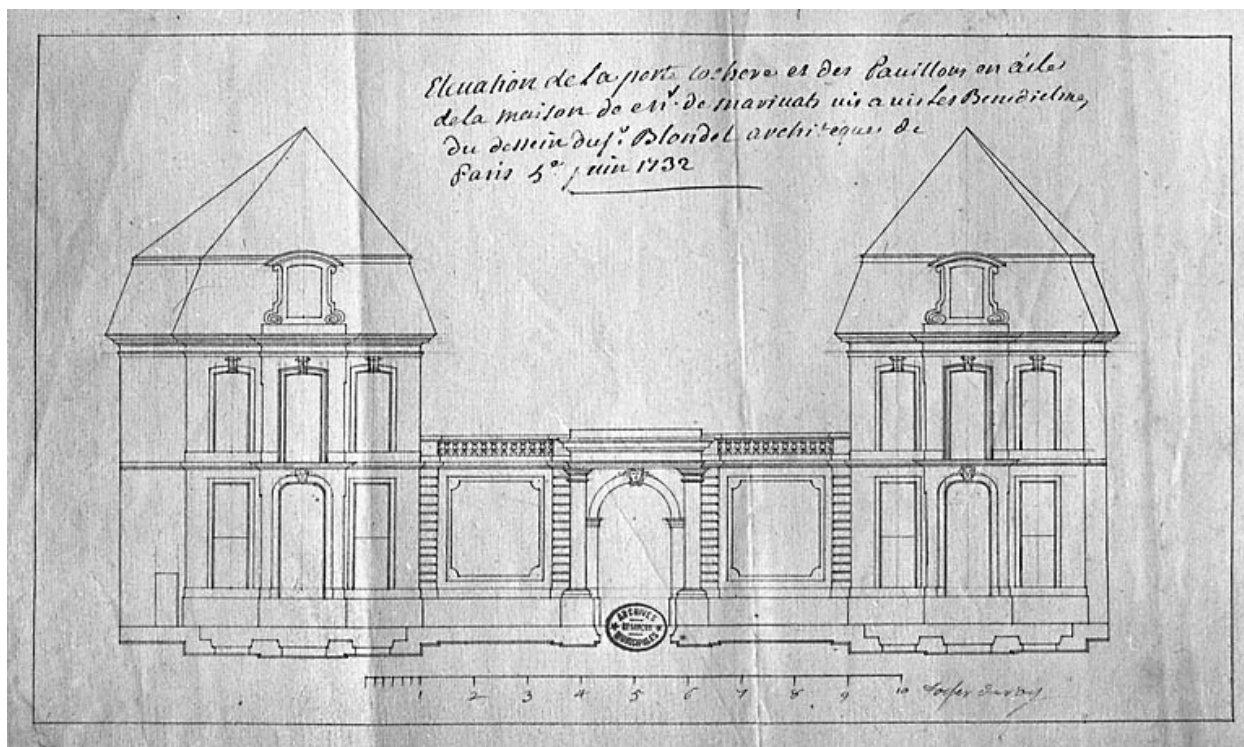 Elevation de la porte cochere et des Pavillons en aile
de la maison de Mr. de marivats vis a vis Les Benedictins,
du dessein du sr. Blondel architeque de
Paris 5e juin 1732
ARCHIVES
BESANÇON
MUNICIPALES
1 2 3 4 5 6 7 8 9 10 Toises du roy